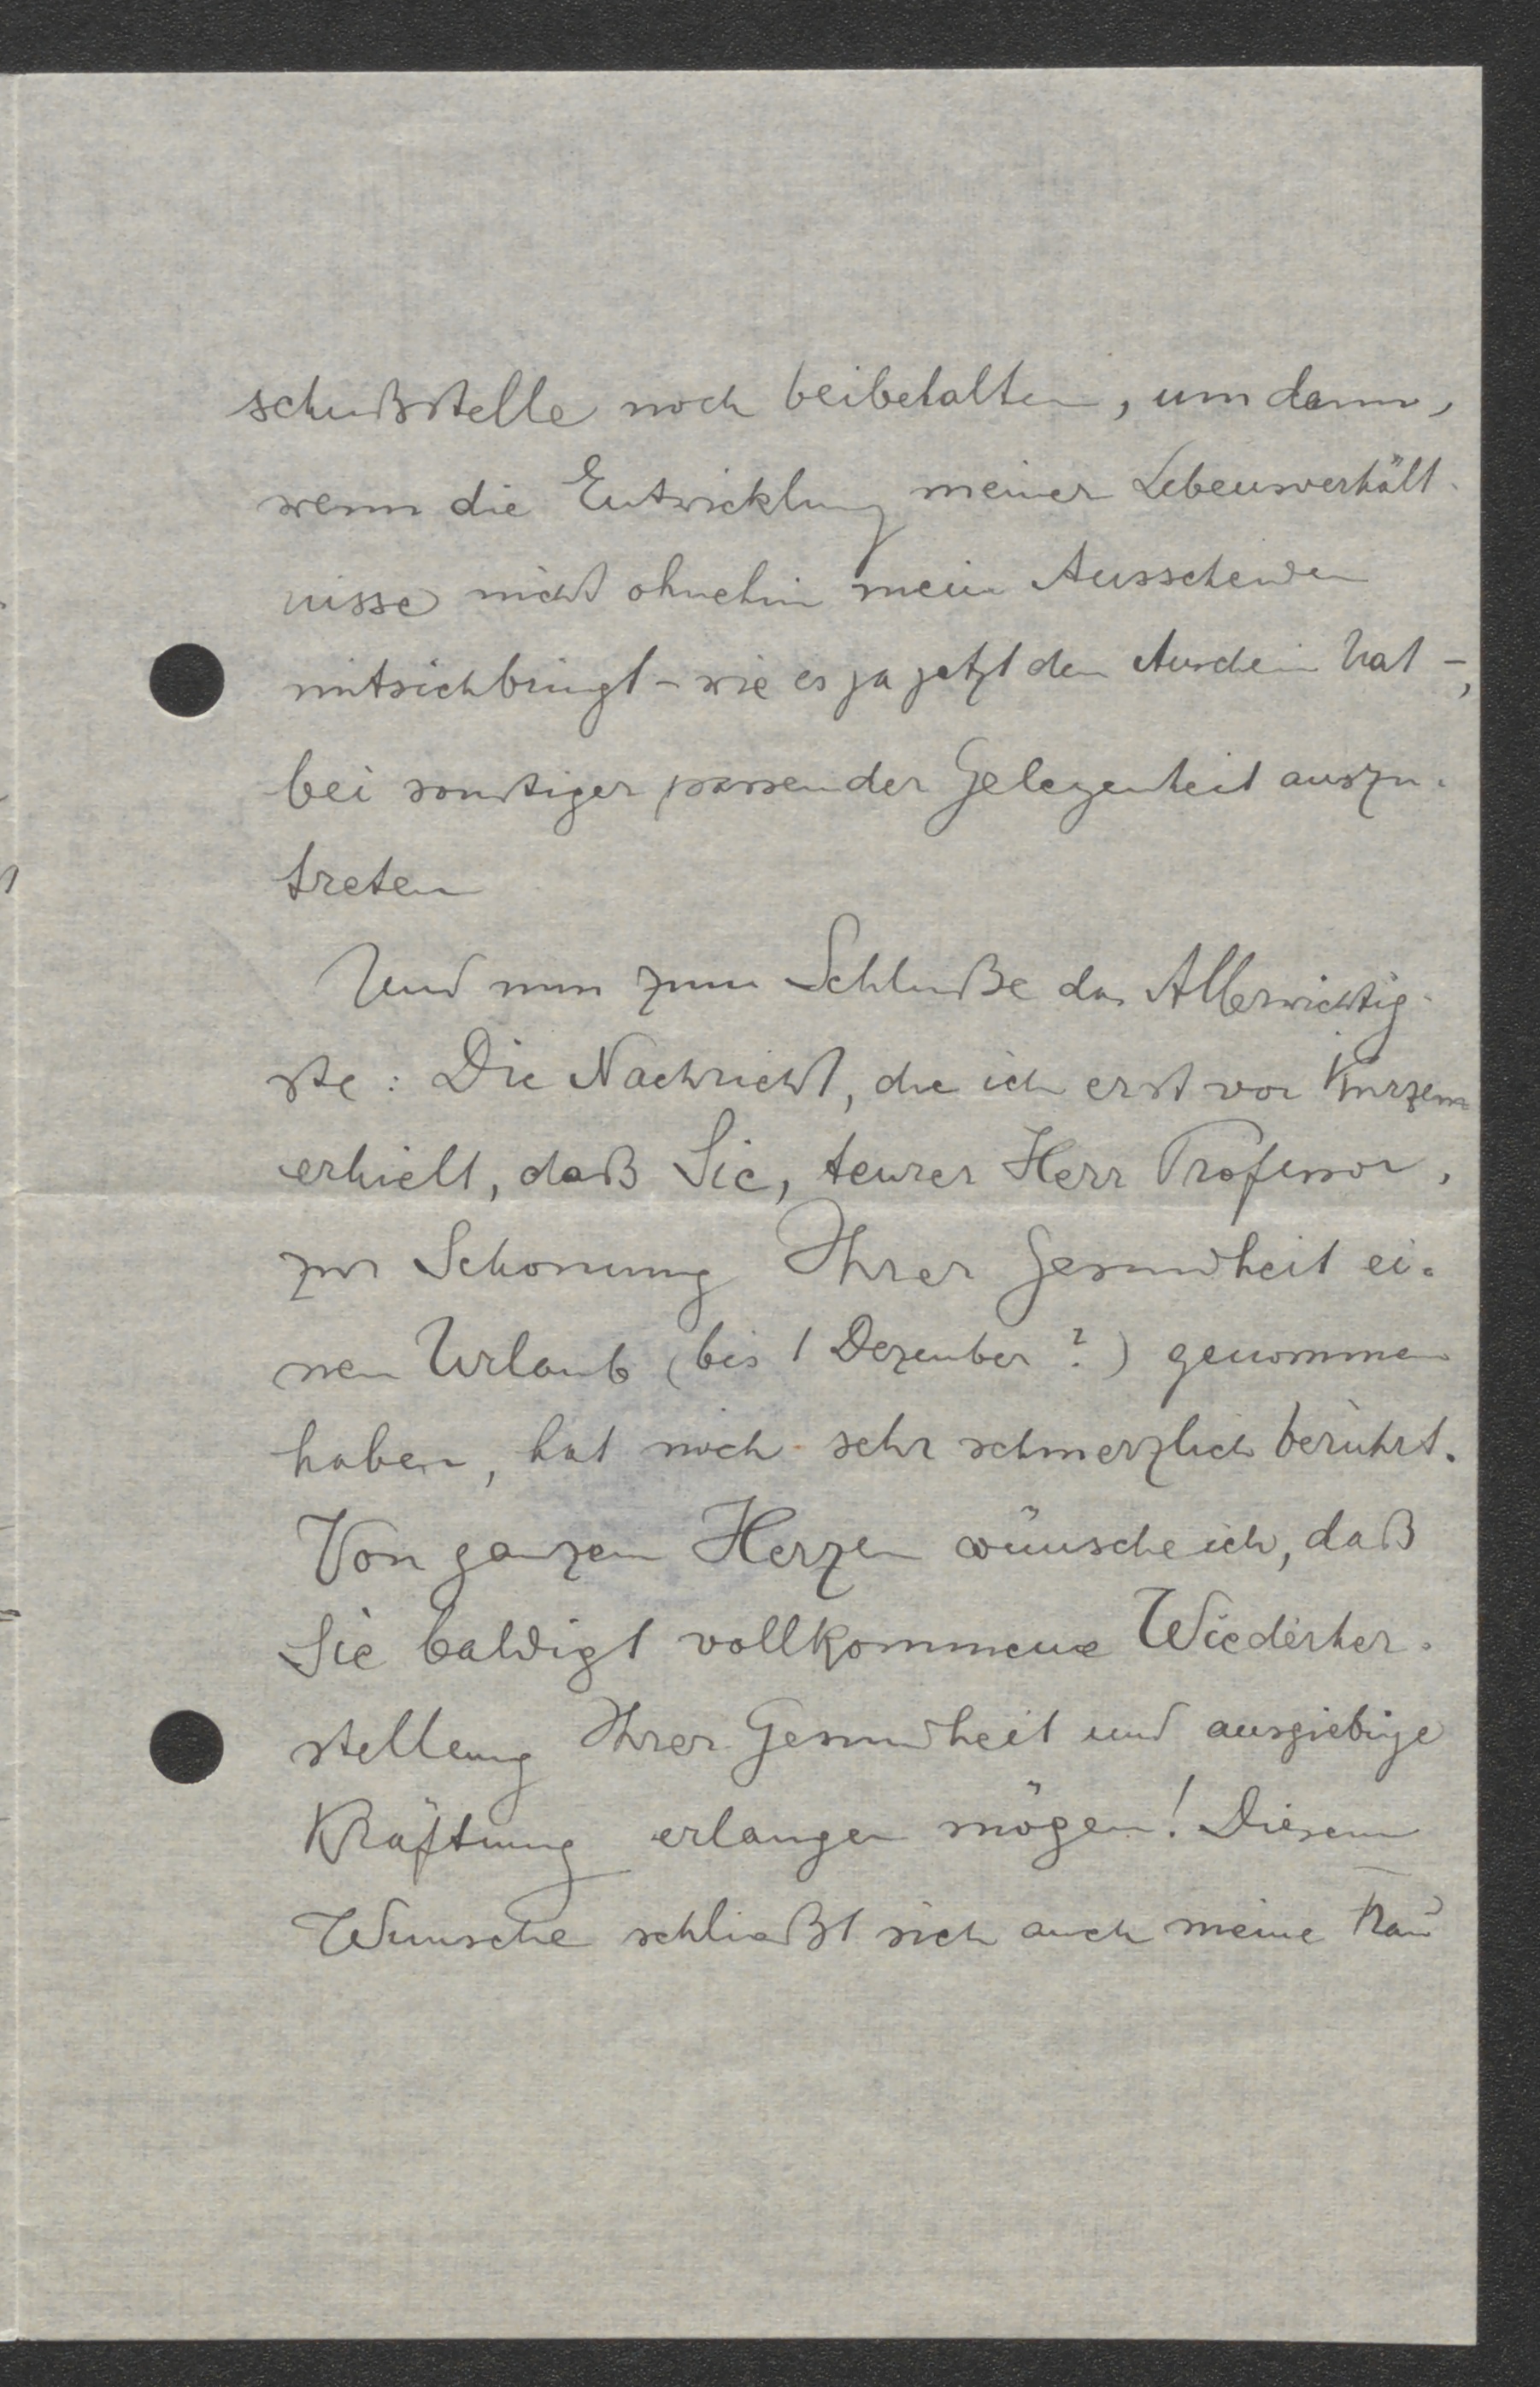 schußstelle noch beibehalten, um dann,
wenn die Entwicklung meiner Lebensverhält-
nisse nicht ohnehin mein Ausscheiden
mitsichbringt – wie es ja jetzt den Anschein hat –,
bei sonstiger passender Gelegenheit auszu-
treten
Und nun zum Schluße das Allerwichtig-
ste: Die Nachricht, die ich erst vor Kurzem
erhielt, daß Sie, teurer Herr Professor,
zur Schonung Ihrer Gesundheit ei-
nen Urlaub (bis 1 Dezember?) genommen
haben, hat mich sehr schmerzlich berührt.
Von ganzem Herzen wünsche ich, daß
Sie baldigst vollkommene Wiederher-
stellung Ihrer Gesundheit und ausgiebige
Kräftung erlangen mögen! Diesem
Wunsche schließt sich auch meine Frau